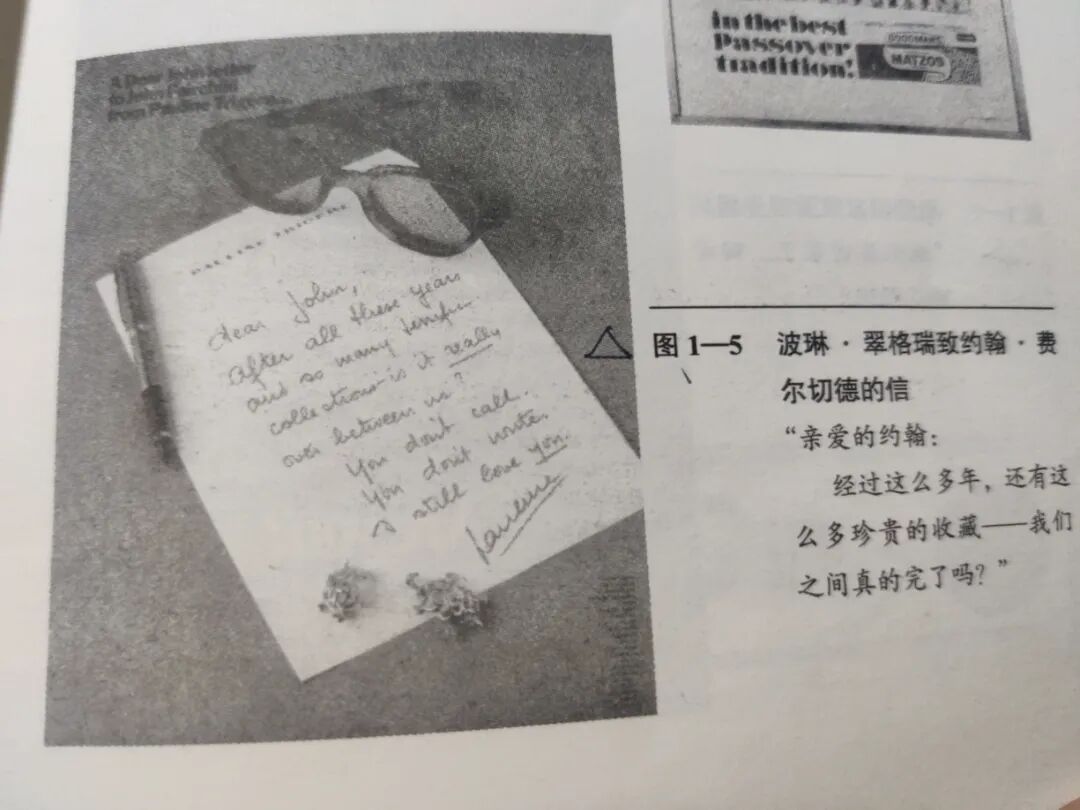 A Dear John letter
to John Fairchild
from Pauline Trigere
PAULINE TRIGERE
dear John,
after all these years
and so many terrific
collections is it really
over between us?
You don't call.
You don't write.
I still love you.
Pauline
in the best
Passover
tradition!
GOODMAN'S
MATZOS
图1—5 波琳·翠格瑞致约翰·费
尔切德的信
“亲爱的约翰：
经过这么多年，还有这
么多珍贵的收藏——我们
之间真的完了吗？”